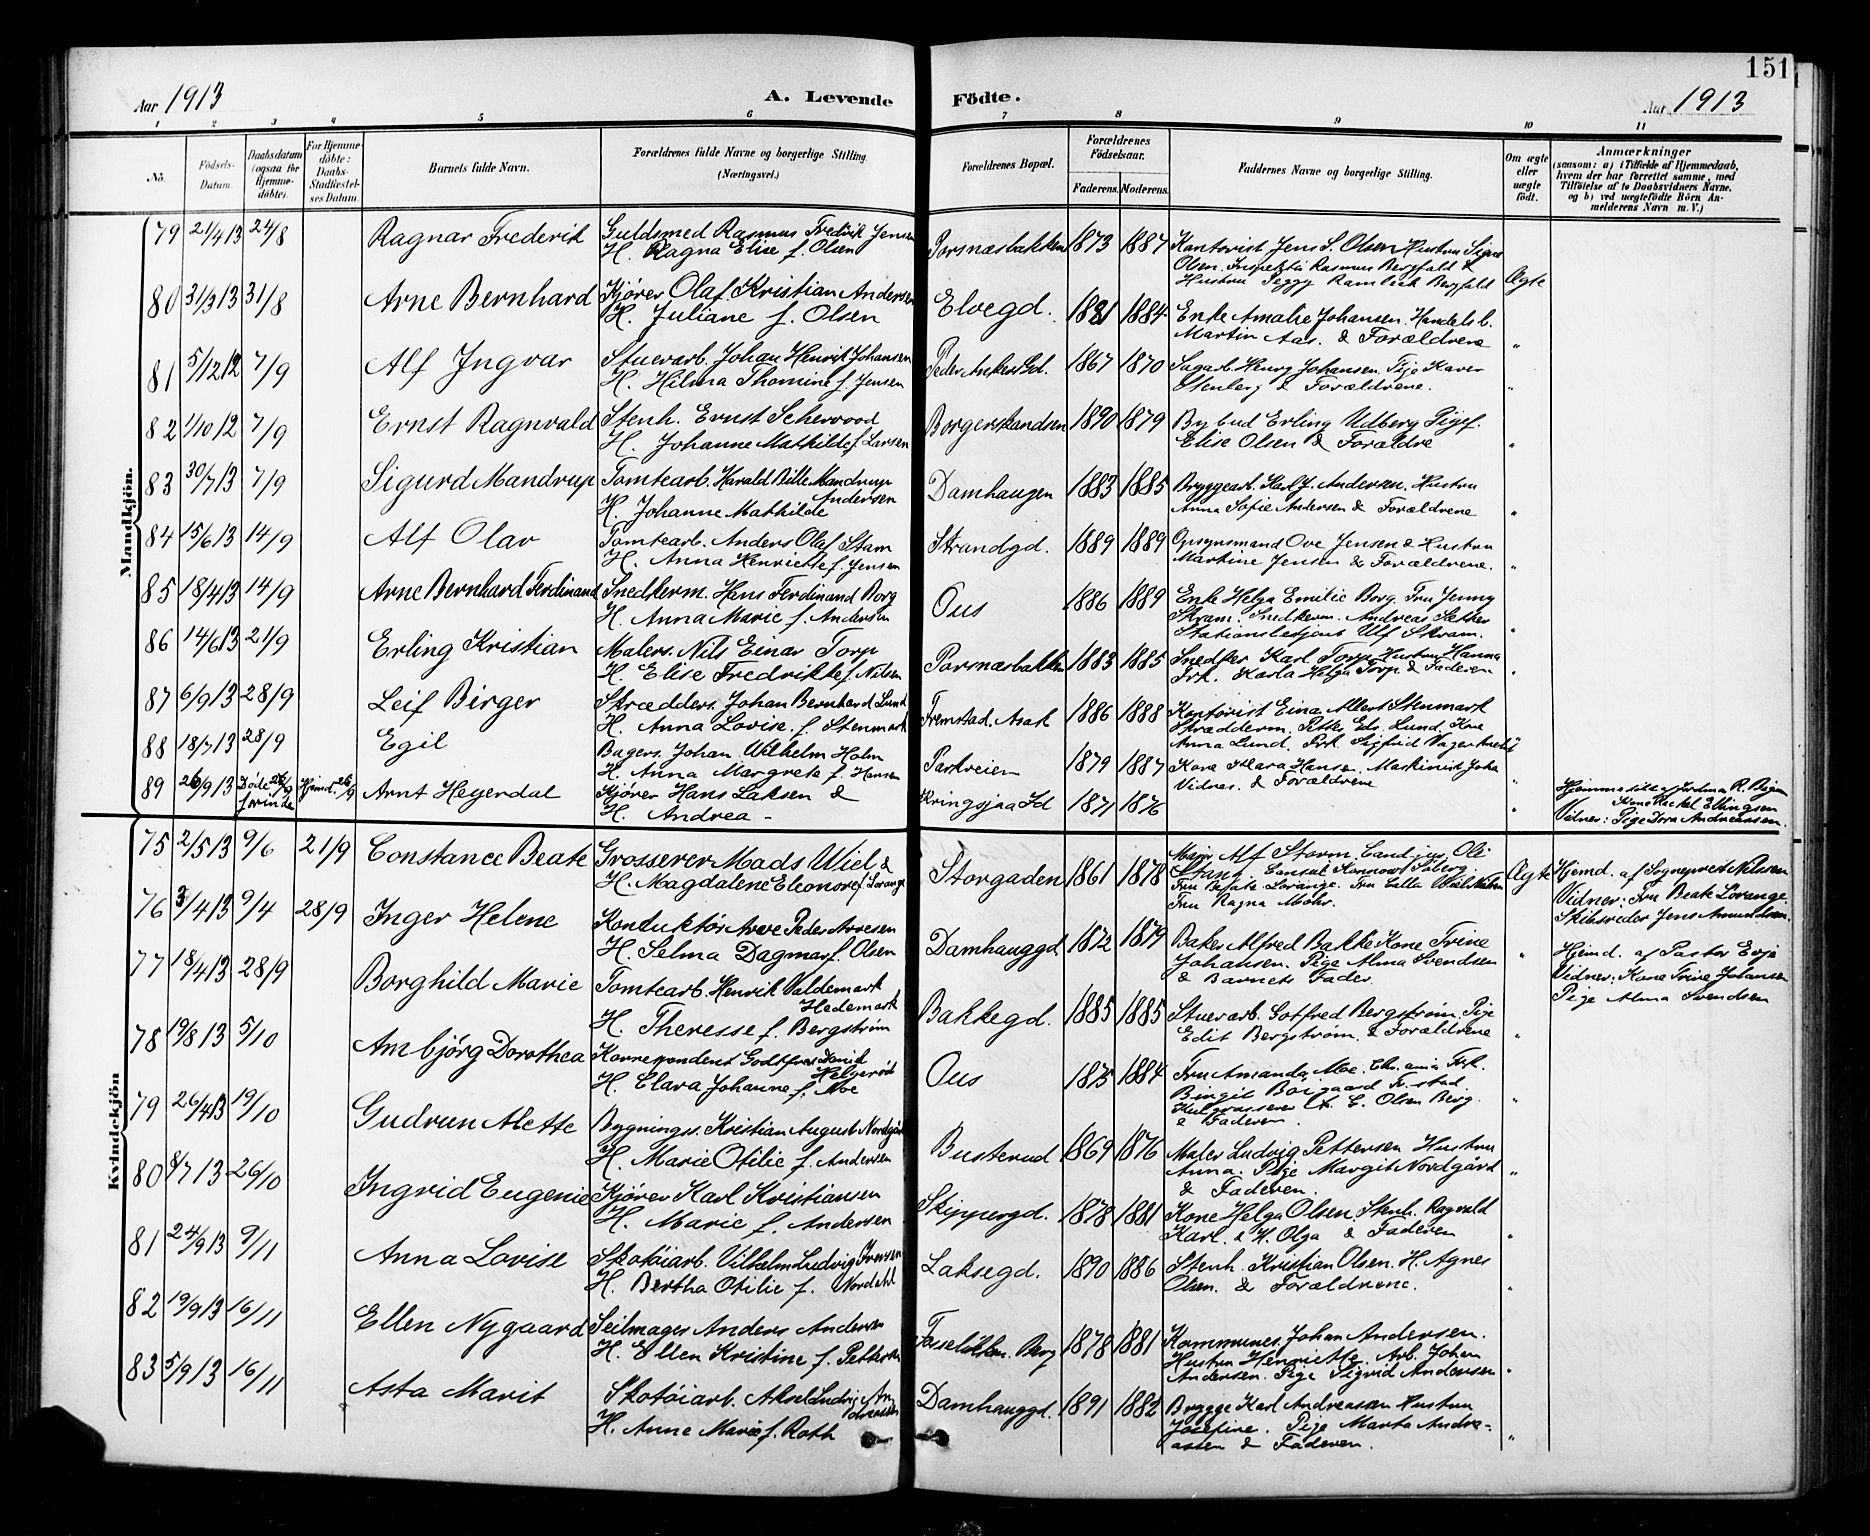 151
Aar 1913
A. Levende
Födte.
Aar 1913
1 2 3 4 5 6 7 8 9 10 11
No.
Födsels-Datum.
Daabsdatum (ogsaa for Hjemme-döbte).
For Hjemme-döbte: Daabs-Stadfæstel-ses Datum.
Barnets fulde Navn.
Forældrenes fulde Navne og borgerlige Stilling. (Næringsvei.)
Forældrenes Bopæl.
Forældrenes Födselsaar.
Faderens. Moderens.
Faddernes Navne og borgerlige Stilling.
Om ægte eller uægte födt.
Anmærkninger
(saasom: a) i Tilfælde af Hjemmedaab, hvem der har forrettet samme, med Tilföielse af to Daabsvidners Navne, og b) ved uægtefödte Börn An-melderens Navn m. V.)
Mandkjön.
79 21/4 13 24/8 Ragnar Frederik Guldsmed Rasmus Fredrik Jensen
H. Ragna Elise f. Olsen Porsnæsbakken 1873 1887 Kontorist Jens S. Olsen Hustru Signe
Olsen. Rasmus Bergfald &
Hustru Peggy Bergfald Ægte
80 31/3 13 31/8 Arne Bernhard Kjører Olaf Kristian Andersen
H. Juliane f. Olsen Elvegd. 1881 1884 Enke Amalie Johansen. Handelsb.
Martin Aas. & Forældrene "
81 5/12 12 7/9 Alf Ingvar Stuerarb. Johan Henrik Johansen
H. Hilma Thomine f. Jensen Peder Ankers Gd. 1867 1870 Sagarb. Henry Johansen. Pije Karen
Stenberg & Forældrene. "
82 1/10 12 7/9 Ernst Ragnvald Stenh. Ernst Scherwood
H. Johanne Mathilde f. Larsen Borgerskandsen 1890 1879 Bybud Erling Udberg Pige
Elise Olsen & Forældre "
83 30/7 13 7/9 Sigurd Mandrup Tomtearb. Harald Bille Mandrup
Andersen
H. Johanne Mathilde Damhaugen 1883 1885 Bryggearb. Karl J. Andersen. Hustru
Anna Sofie Andersen & Forældrene "
84 15/6 13 14/9 Alf Olav Tomtearb. Anders Olaf Stam
H. Anna Henriette f. Jensen Strandgd. 1889 1889 Opsynsmand Ove Jensen & Hustru
Martine Jensen & Forældrene. "
85 18/4 13 14/9 Arne Bernhard Ferdinand Snedkerm. Hans Ferdinand Borg
H. Anna Marie f. Andersen Ous 1886 1889 Enke Helga Emilie Borg. Fru Jenny
Skram. Snedkerm. Andreas Sæther
Stationsbetjent Ulf Skram. "
86 14/6 13 21/9 Erling Kristian Malers. Nils Einar Torp
H. Elise Fredrikke f. Nilsen Porsnæsbakken 1883 1885 Snedker Karl Torp Hustru Hanna
Frk. Karla Helga Torp & Faderen "
87 6/9 13 28/9 Leif Birger Skrædders. Johan Bernhard Lund
H. Anna Lovise. f. Stenmark Fremstad. Asak 1886 1888 Kontorist Einar Albert Stenmark
Skrædderm. Petter Edv. Lund. Kone
Anna Lund. Frk. Sigfrid
88 18/7 13 28/9 Egil Bagers. Johan Wilhelm Holm
H. Anna Margrete f. Hansen Parkveien 1879 1887 Kone Klara Hansen. Maskinist Joha
Vidnes. & Forældrene "
89 26/9 13 Døde 26/9 Hjemd. 26/9 Arnt Heyerdal Kjører Hans Laksen &
H. Andrea - Kringsjaa Gd 1871 1876 " Hjemmedøbt af Jordmo R. Bigum
Kone Rachel Ellingsen
Vidner: Pige Dora Andreassen.
Kvindekjön
75 2/5 13 9/6 21/9 Constance Beate Grosserer Mads Wiel &
H. Magdalene Eleonore f. Lorange Storgaden 1861 1878 Major Alf Storm. Cand. jur. Ole
Stang. Consul
Fru Beate Lorange. Fru
Fru Ragna Mohr. Ægte Hjemd. af Sogneprest Nilssen
Vidner: Fru Beate Lorange
Skibsreder Jens Amundsen.
76 3/4 13 9/4 28/9 Inger Helene Konduktør Arve Peder Arvesen
H. Selma Dagmar f. Olsen Damhauggd. 1872 1879 Baker Alfred Bakke Kone Trine
Johansen. Pige Alma Svendsen
& Barnets Fader. " Hjemd. af Pastor Evje
Vidner: Kone Trine Johansen
Pige Alma Svendsen
77 18/4 13 28/9 Borghild Marie Tomtearb. Henrik Valdemark
Hedemark
H. Theresse f. Bergstrøm Bakkegd. 1885 1885 Stuerarb. Gotfred Bergstrøm. Pige
Edit Bergstrøm. & Forældrene "
78 19/8 13 5/10 Ambjørg Dorothea Korrespondent Godtfred David
Helgerød
H. Clara Johanne f. Moe Ous 1875 1884 Fru Amanda Moe. Chr.ania Frk.
Birgit Borgaard Fr.stad.
A. C. Olsen Berg.
& Faderen. "
79 26/4 13 19/10 Gudrun Alette Bygnings. Kristian August Nordgård
H. Marie Otilie f. Andersen Busterud 1869 1876 Maler Ludvig Pettersen Hustru
Anna. Pige Margit Nordgård
& Faderen. "
80 8/7 13 26/10 Ingrid Eugenie Kjører Karl Kristiansen
H. Marie f. Andersen Skippergd. 1878 1881 Kone Helga Olsen. Stenh. Ragvald
Karl. & H. Olga & Faderen "
81 24/9 13 9/11 Anna Lovise Skotøiarb. Vilhelm Ludvig Iversen
H. Bertha Otilie f. Nordahl Laksegd. 1890 1886 Stenh. Kristian Olsen. H. Agnes
Olsen. & Forældrene. "
82 19/9 13 16/11 Ellen Nygaard Seilmager Anders Andersen
H. Ellen Kristine f. Pettersen Berg 1878 1881 Kommunes. Johan Andersen.
Hustru Henriette. Arb. Johan
Andersen. Pige Sigrid Andersen "
83 5/9 13 16/11 Asta Marit Skotøiarb. Aksel Ludvig An
dreassen
H. Anne Marie f. Roth Damhauggd. 1891 1882 Brygge Karl Andreassen Hustru
Josefine. Pige Marta Andre-
assen & Faderen. "